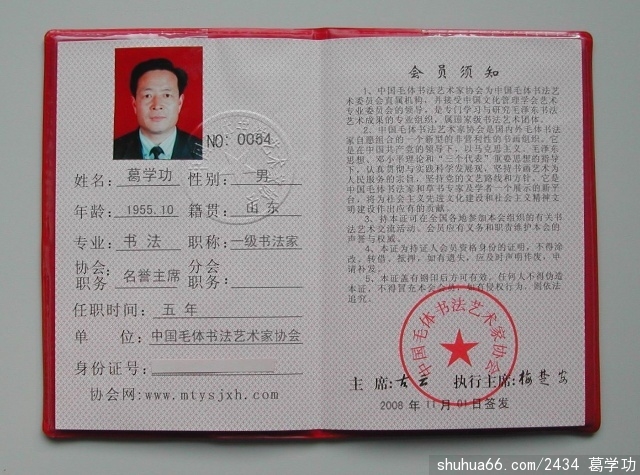 NO: 0054
姓名: 葛学功 性别: 男
年龄: 1955.10 籍贯: 山东
专业: 书法 职称: 一级书法家
协会职务: 名誉主席 分会职务:
任职时间: 五年
单 位: 中国毛体书法艺术家协会
身份证号:
协会网:www.mtysjxh.com
会员须知
1、中国毛体书法艺术家协会为中国毛体书法艺
术委员会直属机构,并接受中国文化管理学会艺术
专业委员会的领导,是专门学习与研究毛泽东书法
艺术成果的专业组织,属国家级书法艺术团体。
2、中国毛体书法艺术家协会是国内外毛体书法
家自愿组合的一个新型的非营利性的书画组织,它
是在中国共产党的领导下,以马克思主义、毛泽东
思想、邓小平理论和“三个代表”重要思想的指导
下,认真贯彻与实践科学发展观,坚持书画艺术为
人民服务的宗旨,坚持党的文艺路线和方针,它是
中国毛体书法家和草书专家及学者一个展示的新平
台,将为社会主义先进文化建设和社会主义精神文
明建设作出应有的贡献。
3、持本证可在全国各地参加本会组织的有关书
法艺术交流活动、会员应有义务和职责维护本会的
声誉与权威。
4、本证为持证人会员资格身份的证明,不得涂
改、转借、抵押,如有遗失,应及时声明作废,申
请补发。
5、本证盖有钢印后方可有效,任何人不得伪造
本证,不得冒充本会会员,如有侵权行为,则依法
追究。
中国毛体书法艺术家协会
主 席: 古云 执行主席: 梅楚安
2008 年 11月 01日签发
shuhua66.com/2434 葛学功